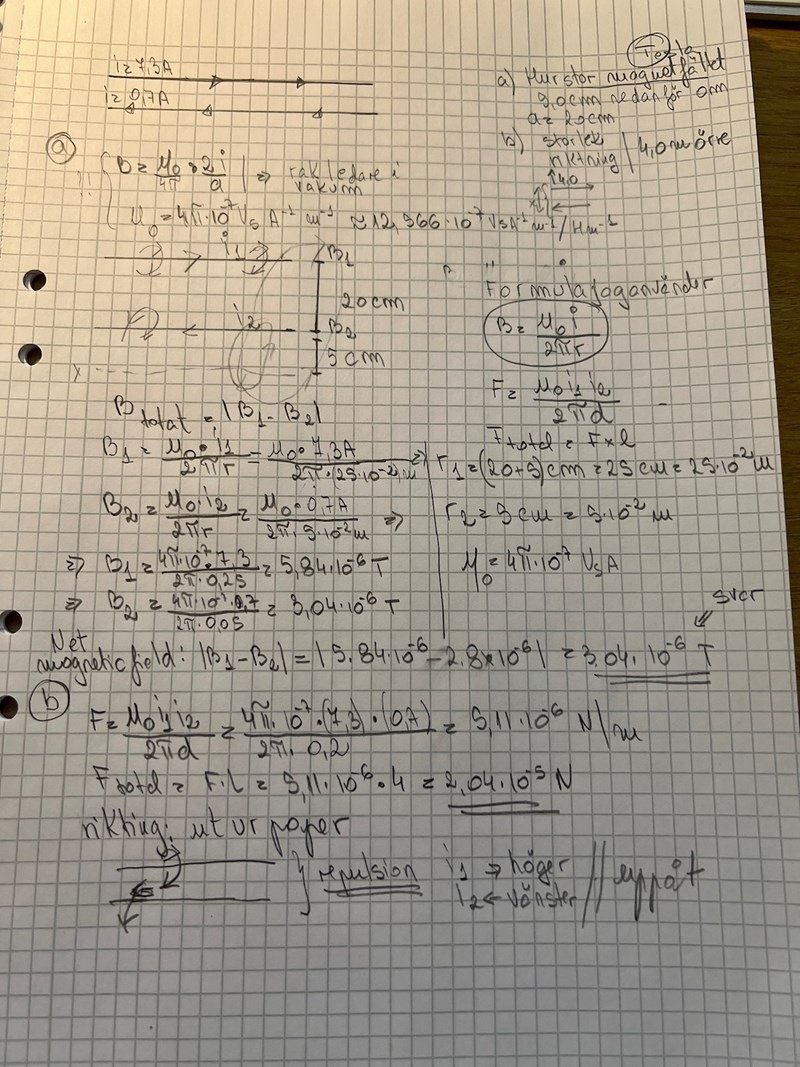 i=7,3A
i=0,7A
Tesla
a) Hur stor magnetfältet
5,0cm nedanför om
a= 20cm
b) storlek
riktning / 4,0m övre
↑4,0
(a)
B = μ₀/4π • 2i/a ⇒ rak ledare i
vakuum
μ₀ = 4π·10⁻⁷ VsA⁻¹ m⁻¹ ≈ 12,566·10⁻⁷ VsA⁻¹m⁻¹/Hm⁻¹
i₁ B₁
20cm
i₂ B₂
5cm
x
Formula jag använder
B = μ₀i/2πr
F = μ₀i₁i₂/2πd
Ftotal = F×l
Btotal = |B₁-B₂|
B₁ = μ₀•i₁/2πr = μ₀•7,3A/2π•(25·10⁻²)m ⇒
r₁=(20+5)cm = 25cm = 25·10⁻² m
B₂ = μ₀i₂/2πr = μ₀•0,7A/2π·5·10⁻²m ⇒
r₂ = 5cm = 5·10⁻² m
μ₀ = 4π·10⁻⁷ VsA
⇒ B₁ = 4π·10⁻⁷·7,3/2π·0,25 = 5,84·10⁻⁶ T
⇒ B₂ = 4π·10⁻⁷·0,7/2π·0,05 = 3,04·10⁻⁶ T
svar
Net
magnetic field: |B₁-B₂| = |5.84·10⁻⁶-2.8×10⁻⁶| = 3,04·10⁻⁶ T
(b)
F = μ₀i₁i₂/2πd = 4π·10⁻⁷·(7,3)·(0,7)/2π·0,2 = 5,11·10⁻⁶ N/m
Ftotal = F·L = 5,11·10⁻⁶•4 = 2,04·10⁻⁵ N
rikting: ut ur paper
} repulsion
i₁ → höger
i₂ ← vänster // uppåt